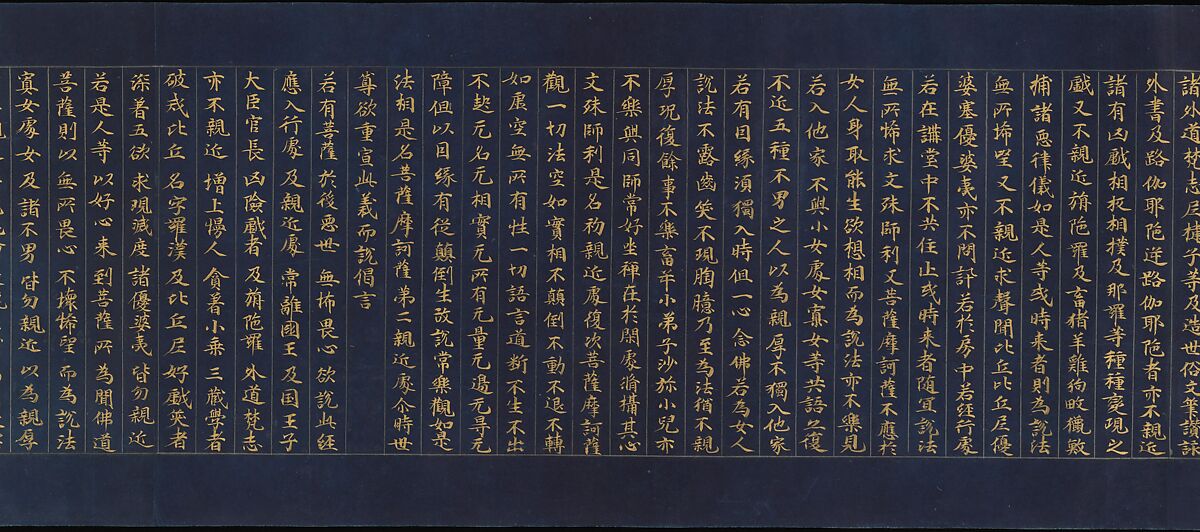 諸外道梵志尼揵子等及造世俗文筆讚詠
外書及路伽耶陀逆路伽耶陀者亦不親近
諸有凶戲相扠相撲及那羅等種種變現之
戲又不親近旃陀羅及畜猪羊雞狗畋獵
捕諸惡律儀如是人等或時来者則為說法
無所悕望又不親近求聲聞比丘比丘尼優
婆塞優婆夷亦不問訊若於房中若經行處
若在講堂中不共住止或時来者随宜說法
無所悕求文殊師利又菩薩摩訶薩不應於
女人身取能生欲想相而為說法亦不樂見
若入他家不與小女處女寡女等共語亦復
不近五種不男之人以為親厚不獨入他家
若有因緣須獨入時但一心念佛若為女人
說法不露齒笑不現胸臆乃至為法猶不親
厚況復餘事不樂畜年小弟子沙弥小兒亦
不樂與同師常好坐禪在於閑處脩攝其心
文殊師利是名初親近處復次菩薩摩訶薩
觀一切法空如實相不顛倒不動不退不轉
如虛空無所有性一切語言道断不生不出
不起无名无相實无所有无量无邊无导无
障但以因緣有從顛倒生故說常樂觀如是
法相是名菩薩摩訶薩第二親近處尒時世
尊欲重宣此義而說偈言
若有菩薩於後惡世 無怖畏心欲說此經
應入行處及親近處 常離國王及国王子
大臣官長凶險戲者 及旃陀羅外道梵志
亦不親近增上慢人 貪著小乘三藏學者
破戒比丘名字羅漢 及比丘尼好戲笑者
深著五欲求現滅度 諸優婆夷皆勿親近
若是人等以好心来 到菩薩所為聞佛道
菩薩則以無所畏心 不懷悕望而為說法
寡女處女及諸不男 皆勿親近以為親厚